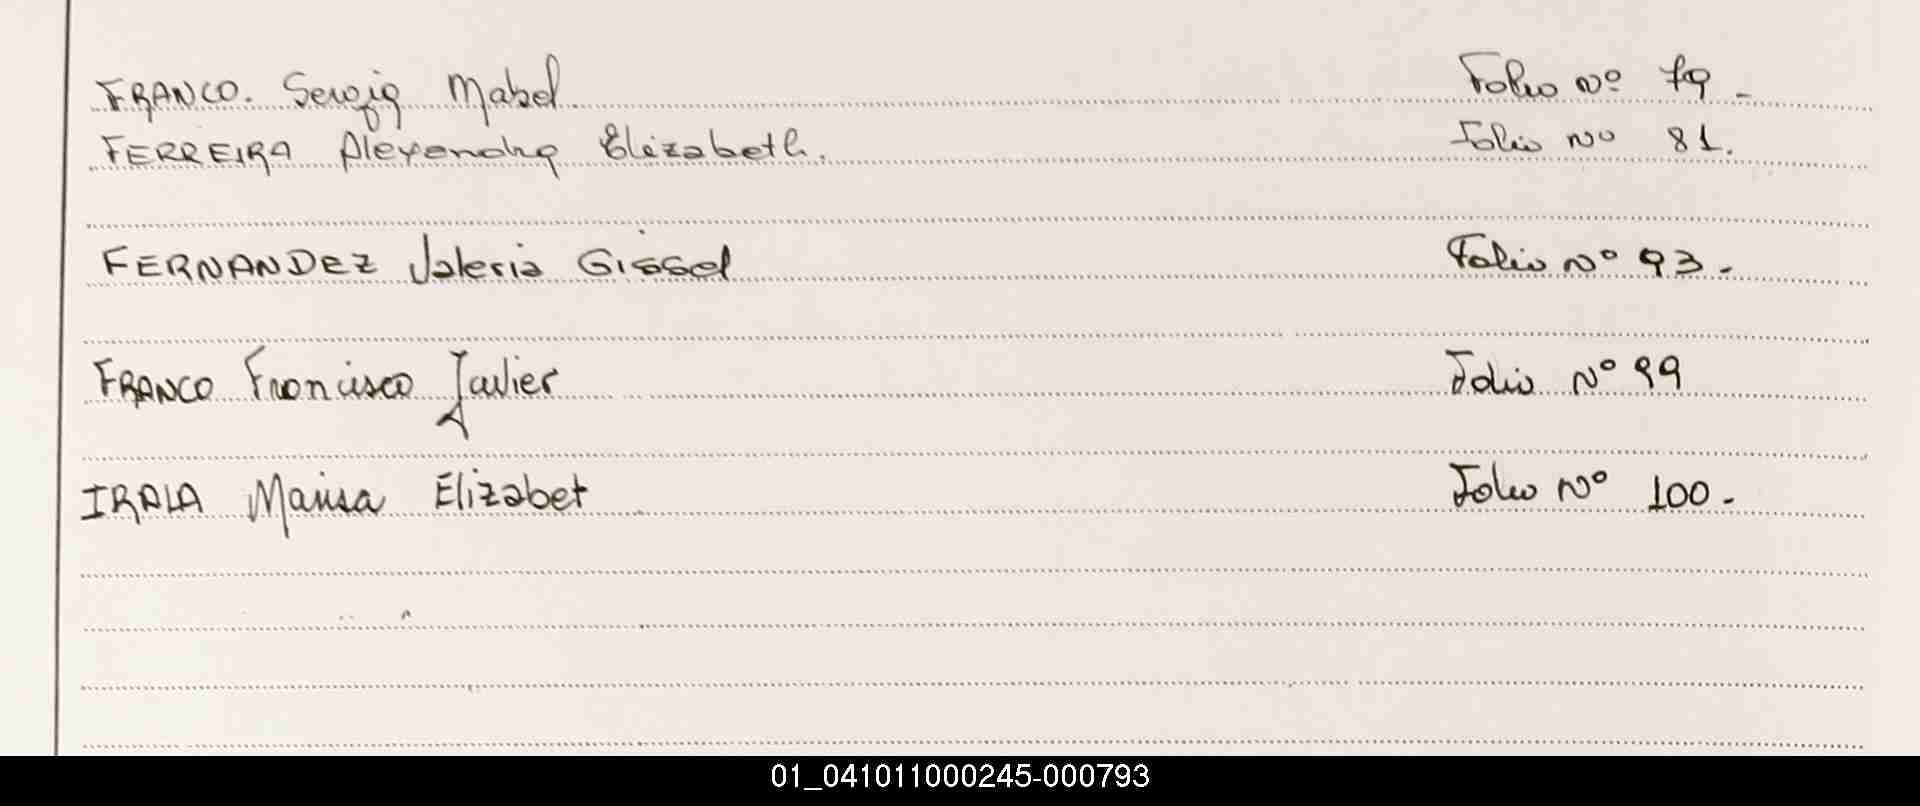 FRANCO. Sergia Mabel Folio Nº 79.-
FERREIRA Alexandra Elizabeth. Folio Nº 81.
FERNANDEZ Valeria Gissel Folio Nº 93.-
FRANCO Francisco Javier Folio Nº 99
IRALA Marisa Elizabet Folio Nº 100.-
01_041011000245-000793